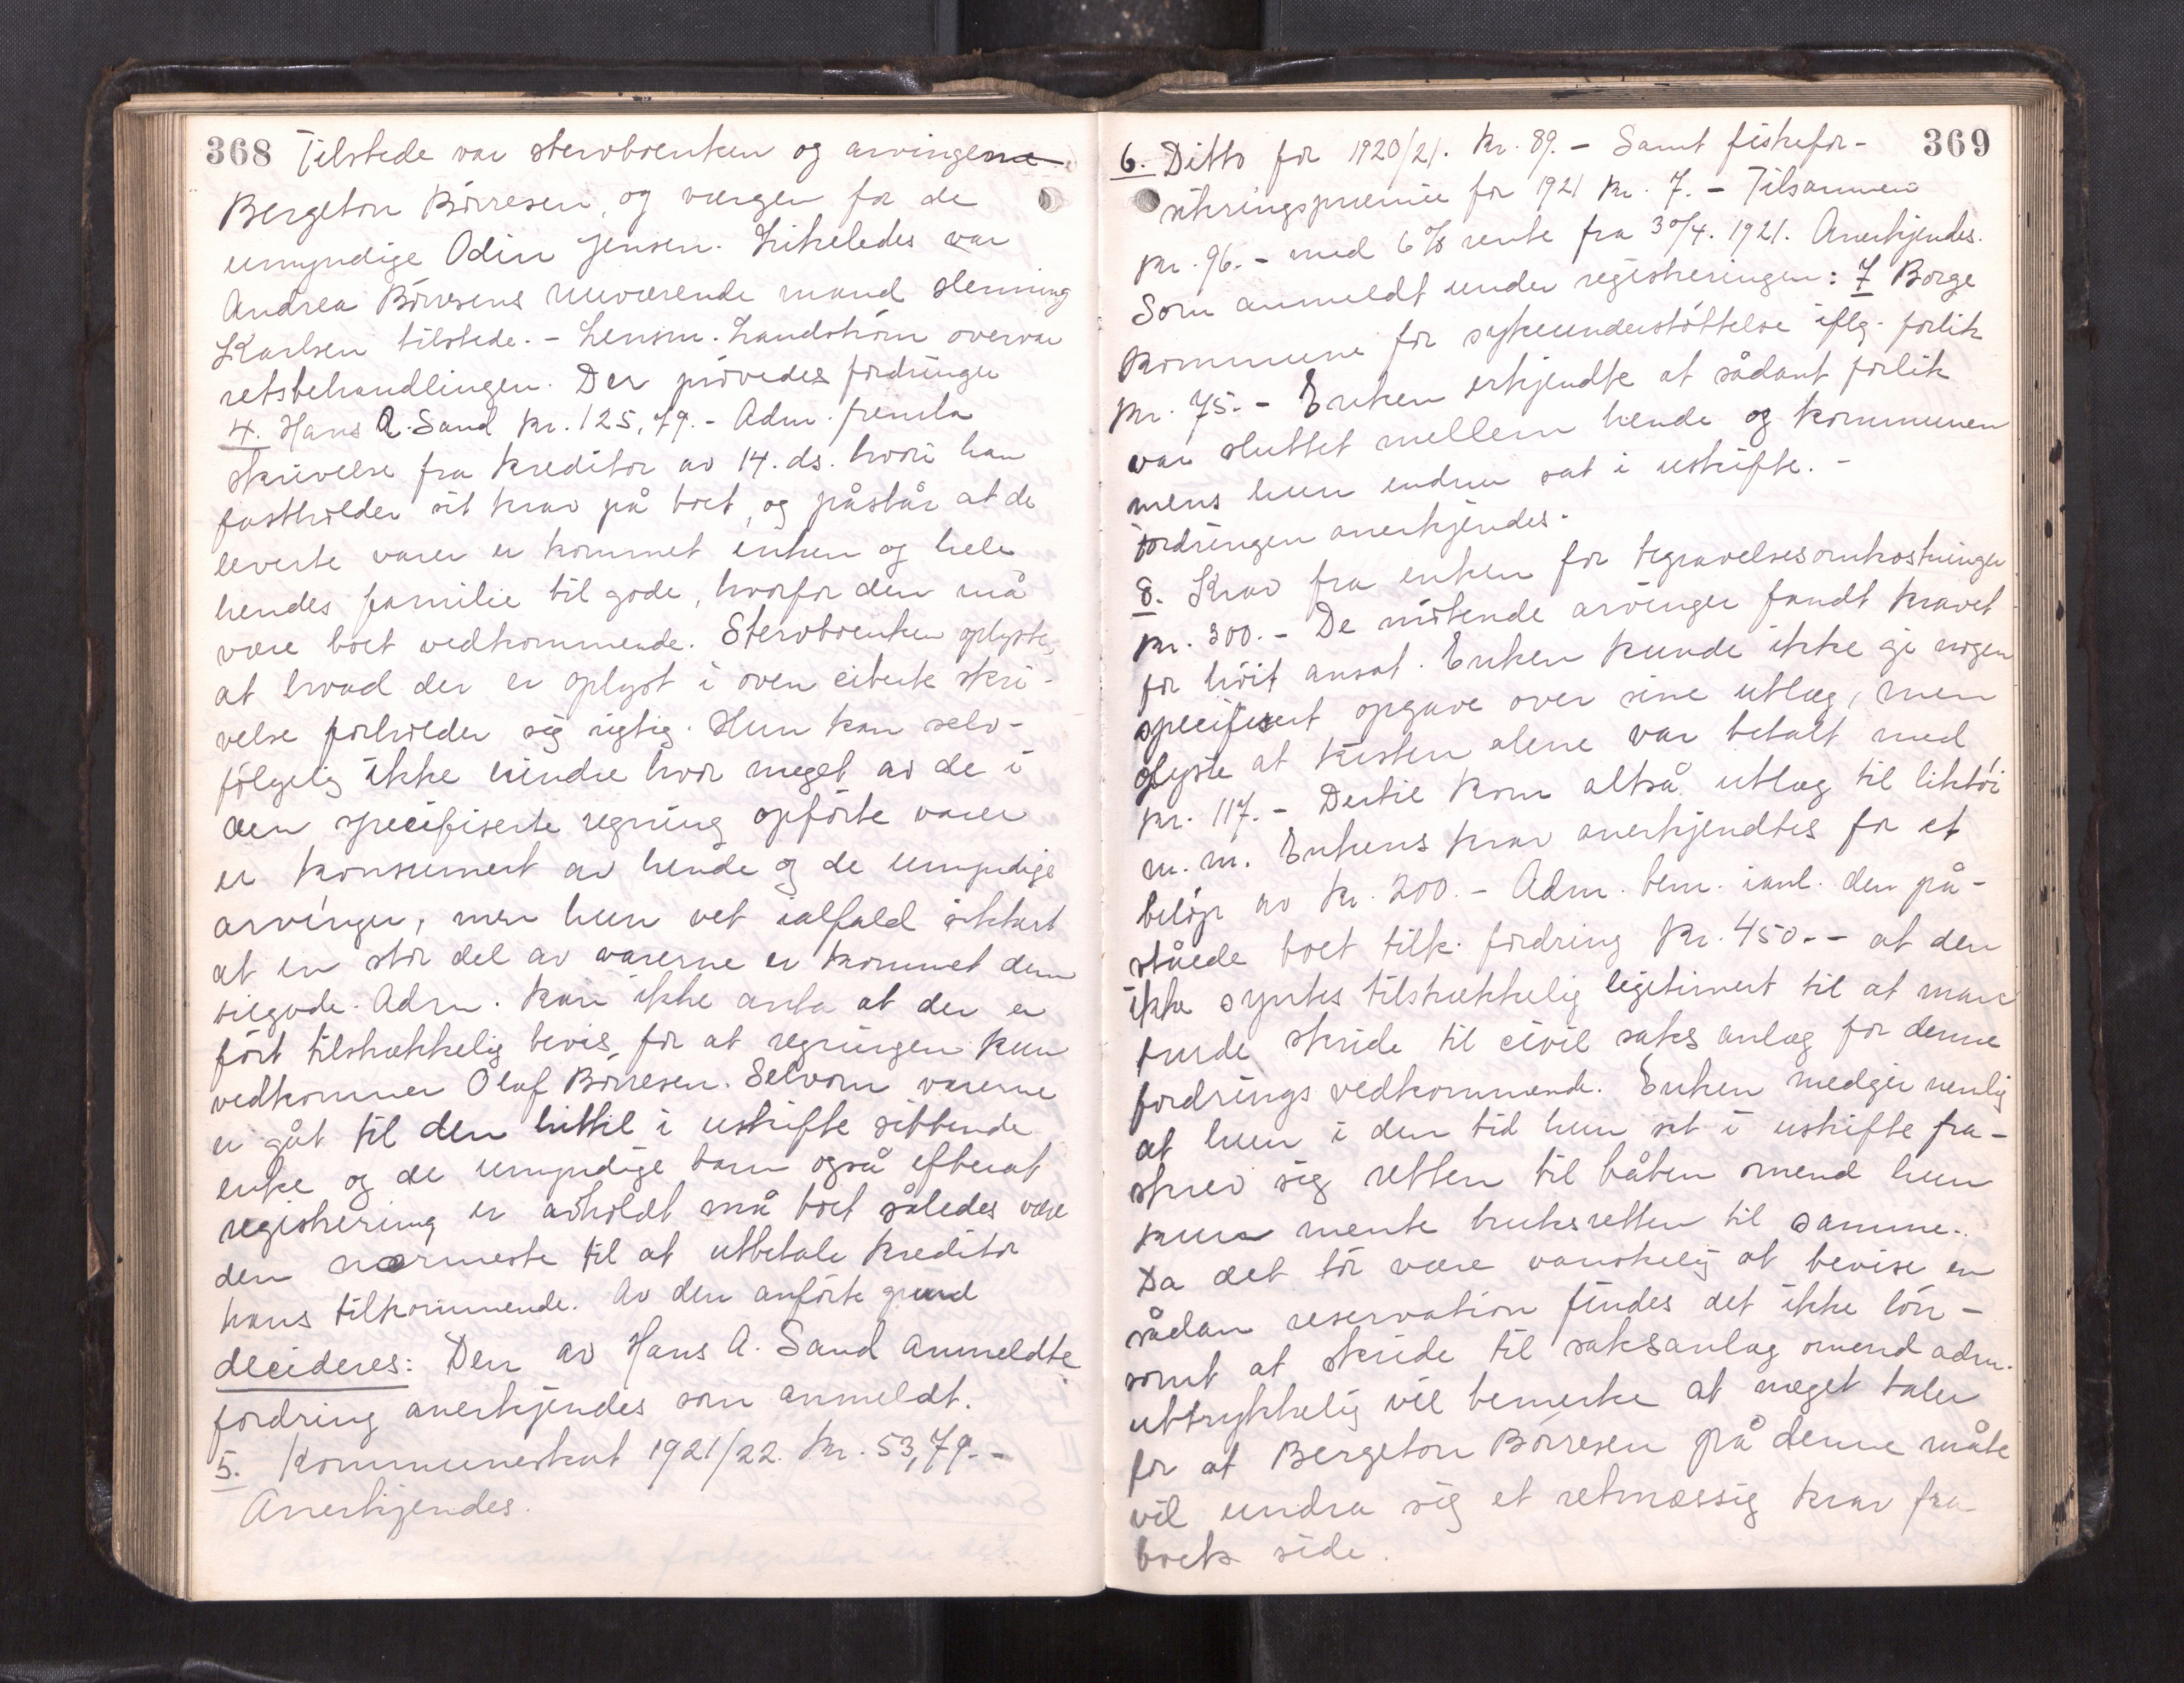 368 Tilstede var stervboenken og arvingerne
Bergeton Börresen, og vergen for de
umyndige Odin Jensen. Likeledes var
Andrea Börresens nuværende mand Henning
Karlsen tilstede. - Lensm. Landström overvar
retsbehandlingen. Der prövedes fordringer
4. Hans A. Sand kr. 125,79.- Adm. fremla
skrivelse fra kreditor av 14. ds. hvori han
fastholder sit krav på boet, og påstår at de
leverte varer er kommet enken og hele
hendes familie til gode, hvorfor den må
være boet vedkommende. Stervboenken oplyste,
at hvad der er oplyst i oven citerte skri-
velse forholder sig rigtig. Hun kan selv-
fölgelig ikke erindre hvor meget av de i
den specifiserte regning opförte varer
er konsumert av hende og de umyndige
arvinger, men hun vet ialfald sikkert
at en stor del av varerne er kommet dem
tilgode. Adm. kan ikke anta at der er
fört tilstrækkelig bevis for at regningen kun
vedkommer Olaf Börresen. Selvom varerne
er gåt til den hittil i uskifte sittende
enke og de umyndige barn også efterat
registrering er avholdt må boet således være
den nærmeste til at utbetale kreditor
hans tilkommende. Av den anförte grund
decideres: Den av Hans A. Sand anmeldte
fordring anerkjendes som anmeldt.
5. Kommuneskat 1921/22. kr. 53,79.-
Anerkjendes.
369
6. Ditto for 1920/21. kr. 89.- Samt fiskefor-
sikringspræmie for 1921 kr. 7.- Tilsammen
kr. 96.- med 6% rente fra 30/4. 1921. Anerkjendes.
Som anmeldt under registreringen: 7 Borge
kommune for sykeunderstöttelse iflg. forlik
kr. 75.- Enken erkjendte at sådant forlik
var sluttet mellem hende og kommunen
mens hun endnu sat i uskifte.-
fordringen anerkjendes.
8. Krav fra enken for begravelsesomkostninger
kr. 300.- De mötende arvinger fandt kravet
for höit ansat. Enken kunde ikke gi nogen
specifisert opgave over sine utlæg, men
oplyste at kisten alene var betalt med
kr. 117.- Dertil kom altså utlæg til liktöi
m.m. Enkens krav anerkjendtes for et
belöp av kr. 200.- Adm. bem. isanl. den på-
ståede boet tilk. fordring kr. 450.- at den
ikke syntes tilstrækkelig legitimert til at man
turde skride til civil saks anlæg for denne
fordrings vedkommende. Enken medgir nemlig
at hun i den tid hun sit i uskifte fra-
skrev sig retten til båten omend hun
kun mente bruksretten til samme.
Da det tör være vanskelig at bevise en
sådan reservation findes det ikke lön-
somt at skride til saksanlæg omend adm.
uttrykkelig vil bemerke at meget taler
for at Bergeton Börresen på denne måte
vil undra sig et retmæssig krav fra
boets side.